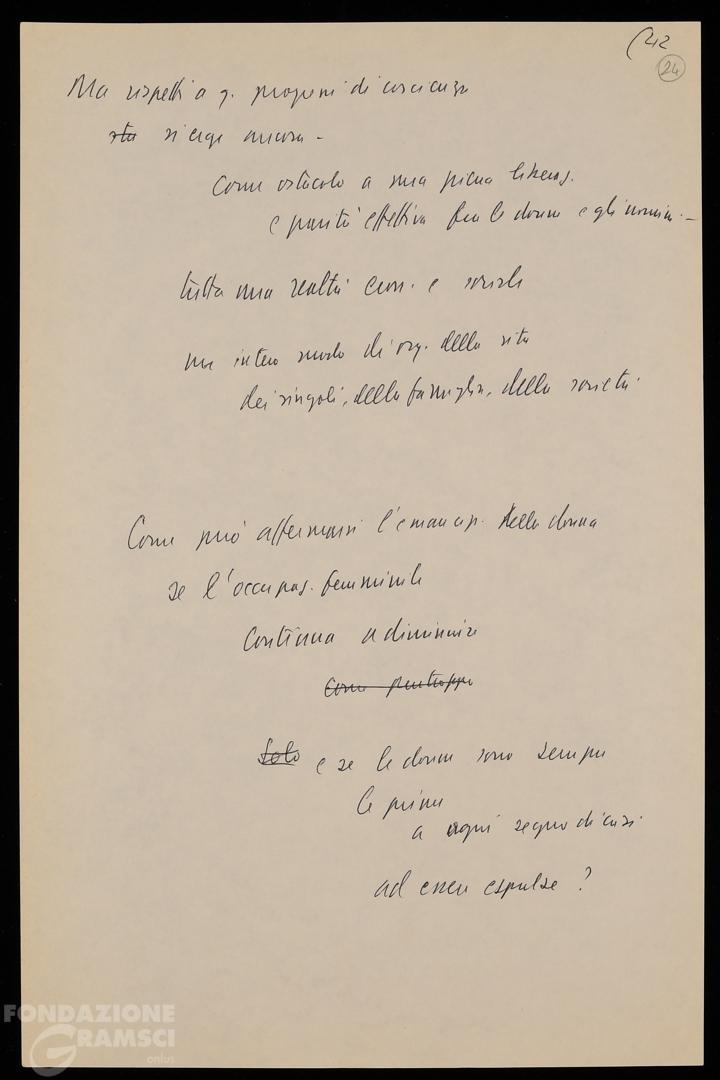 (42
24
Ma rispetto a q. progressi di coscienza
sta si erge ancora -
Come ostacolo a una piena liberaz.
e parità effettiva fra le donne e gli uomini. -
tutta una realtà econ. e sociale
un intero modo di org. della vita
dei singoli, della famiglia, della società.
Come può affermarsi l'emancip. della donna
se l'occupaz. femminile
continua a diminuire
Come purtroppo
Solo e se le donne sono sempre
le prime
a ogni segno di crisi
ad essere espulse ?
FONDAZIONE
GRAMSCI
onlus